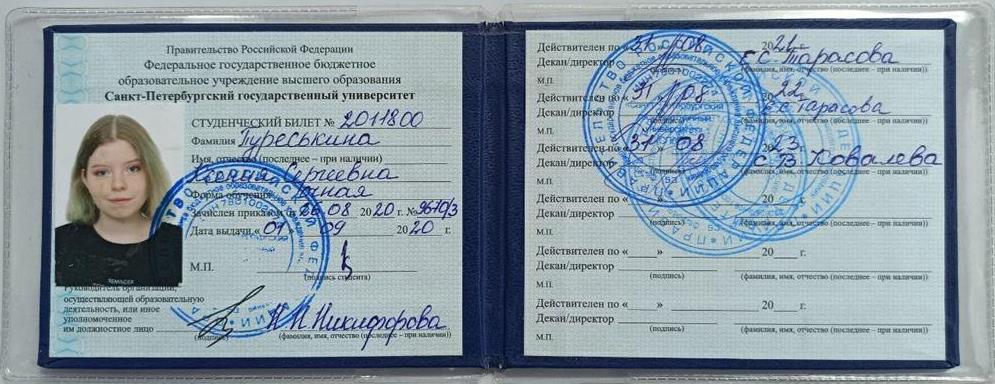 Правительство Российской Федерации
Федеральное государственное бюджетное
образовательное учреждение высшего образования
Санкт-Петербургский государственный университет
СТУДЕНЧЕСКИЙ БИЛЕТ № 2011800
Фамилия Гуреськина
Имя, отчество (последнее – при наличии)
Ксения Сергеевна
Форма обучения очная
Зачислен приказом от 26.08 2020 г. № 9670/3
Дата выдачи «01» 09 2020 г.
М.П.
(подпись студента)
Руководитель организации,
осуществляющей образовательную
деятельность, или иное
уполномоченное
им должностное лицо Н.П. Никифорова
(подпись) (фамилия, имя, отчество (последнее – при наличии))
Действителен по «31» 08 2021 г.
Декан/директор Е.С. Тарасова
М.П. (фамилия, имя, отчество (последнее – при наличии))
Действителен по «31» 08 2022
Декан/директор Е.С. Тарасова
М.П. (фамилия, имя, отчество (последнее – при наличии))
Действителен по «31» 08 2023
Декан/директор С.В. Ковалева
М.П. (фамилия, имя, отчество (последнее – при наличии))
Действителен по
Декан/директор
М.П. (фамилия, имя, отчество (последнее – при наличии))
Действителен по « » 20 г.
Декан/директор
М.П. (подпись) (фамилия, имя, отчество (последнее – при наличии))
Действителен по « » 20 г.
Декан/директор
М.П. (подпись) (фамилия, имя, отчество (последнее – при наличии))